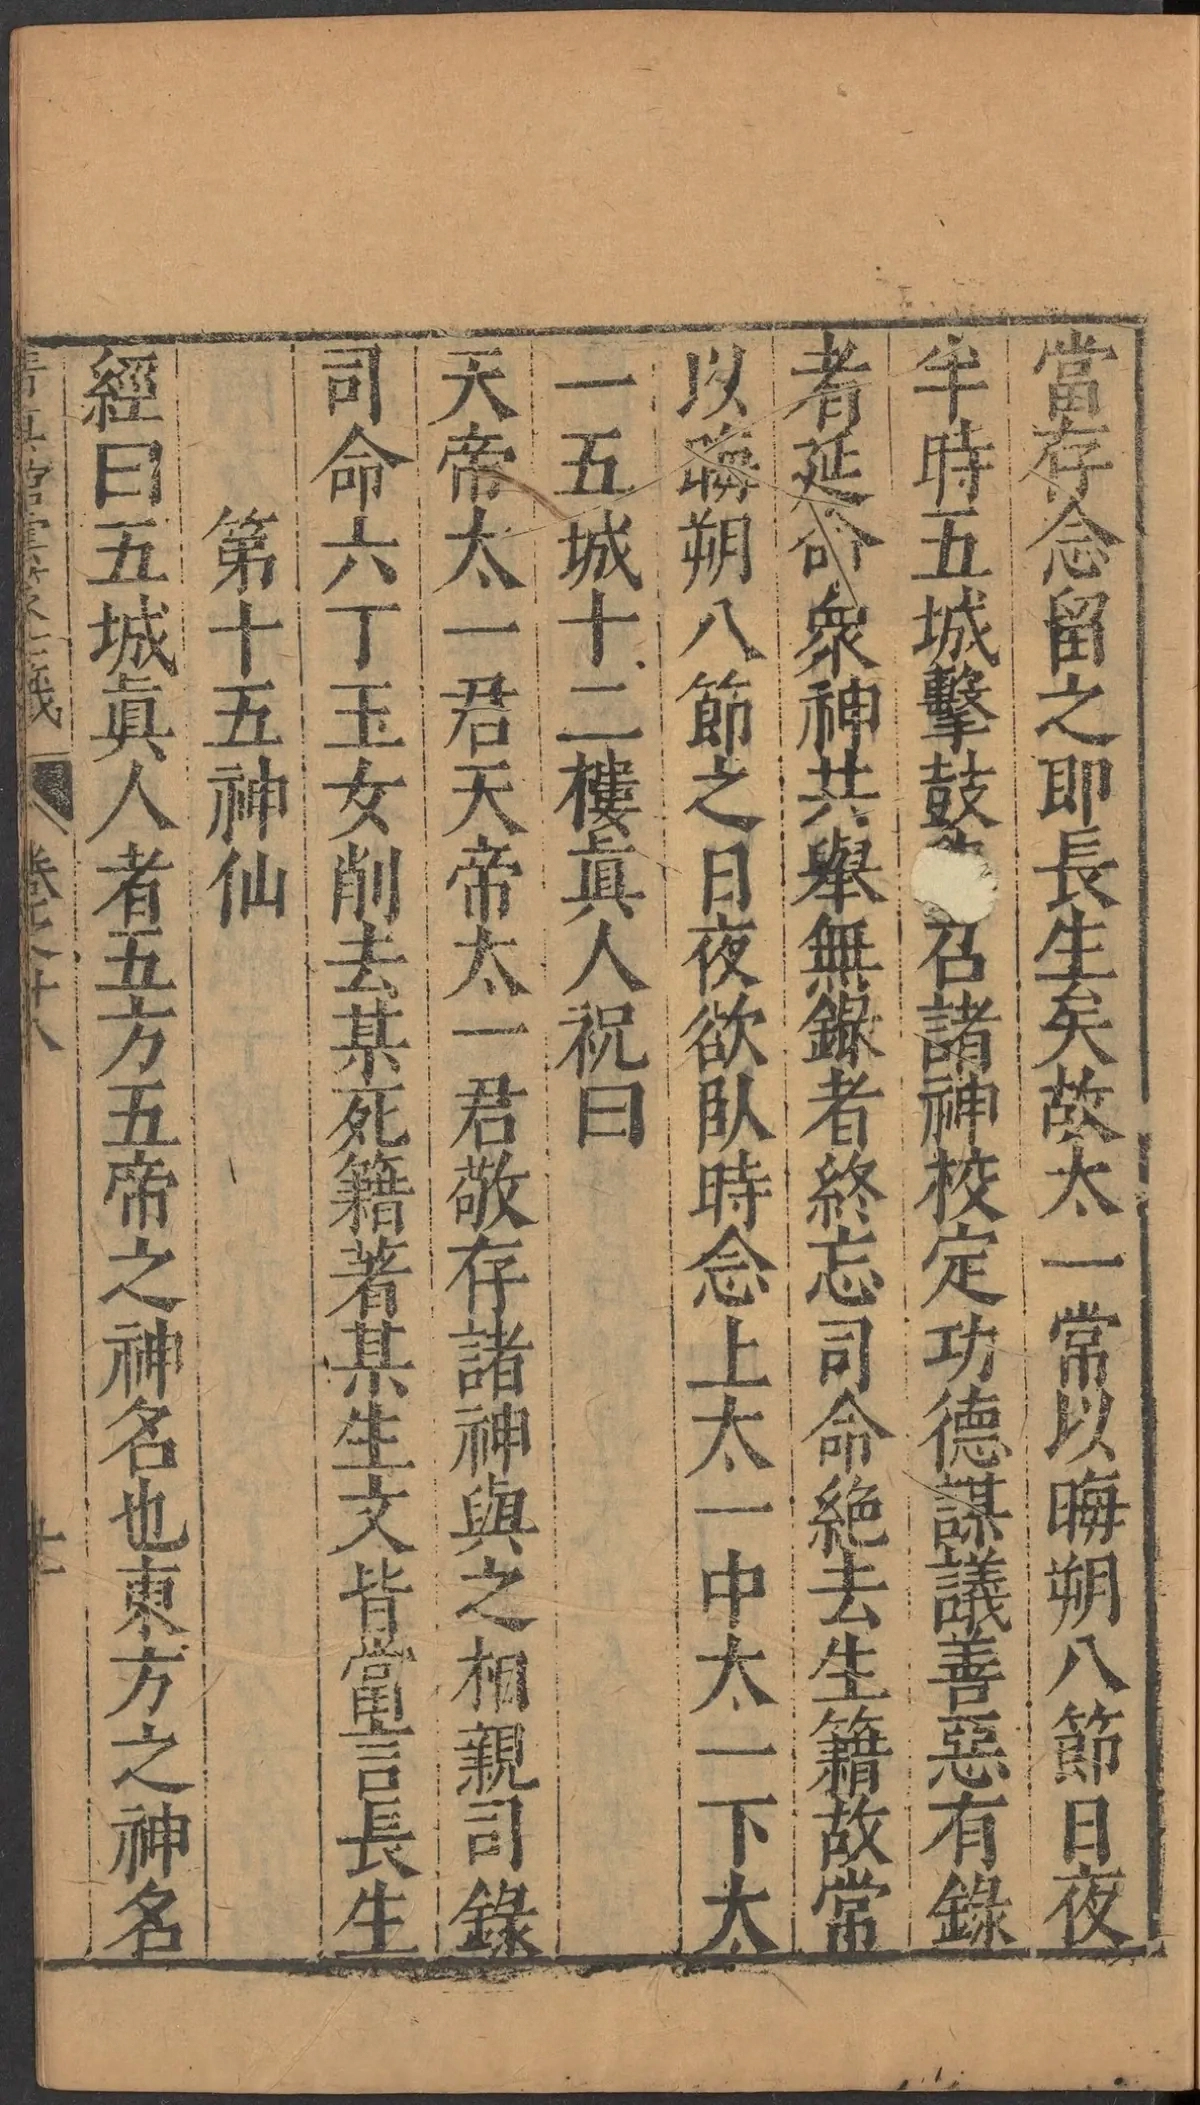 當存念留之即長生矣故太一常以晦朔八節日夜
半時五城擊鼓召諸神校定功德謀議善惡有錄
者延命衆神共舉無錄者終忘司命絶去生籍故常
以晦朔八節之日夜欲臥時念上太一中太一下太
一五城十二樓眞人祝曰
天帝太一君天帝太一君敬存諸神與之相親司錄
司命六丁玉女削去某死籍著某生文皆當言長生
第十五神仙
經曰五城眞人者五方五帝之神名也東方之神名
卷之十八